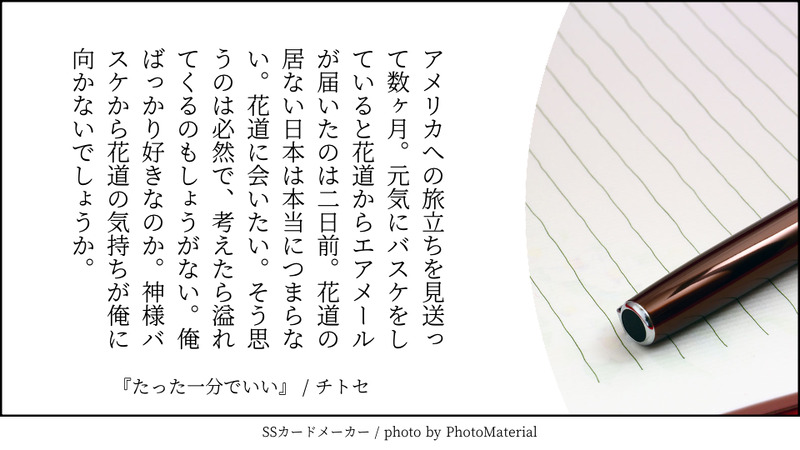 アメリカへの旅立ちを見送っ
て数ヶ月。元気にバスケをし
ていると花道からエアメール
が届いたのは二日前。花道の
居ない日本は本当につまらな
い。花道に会いたい。そう思
うのは必然で、考えたら溢れ
てくるのもしょうがない。俺
ばっかり好きなのか。神様バ
スケから花道の気持ちが俺に
向かないでしょうか。
『たった一分でいい』 / チトセ
SSカードメーカー / photo by PhotoMaterial